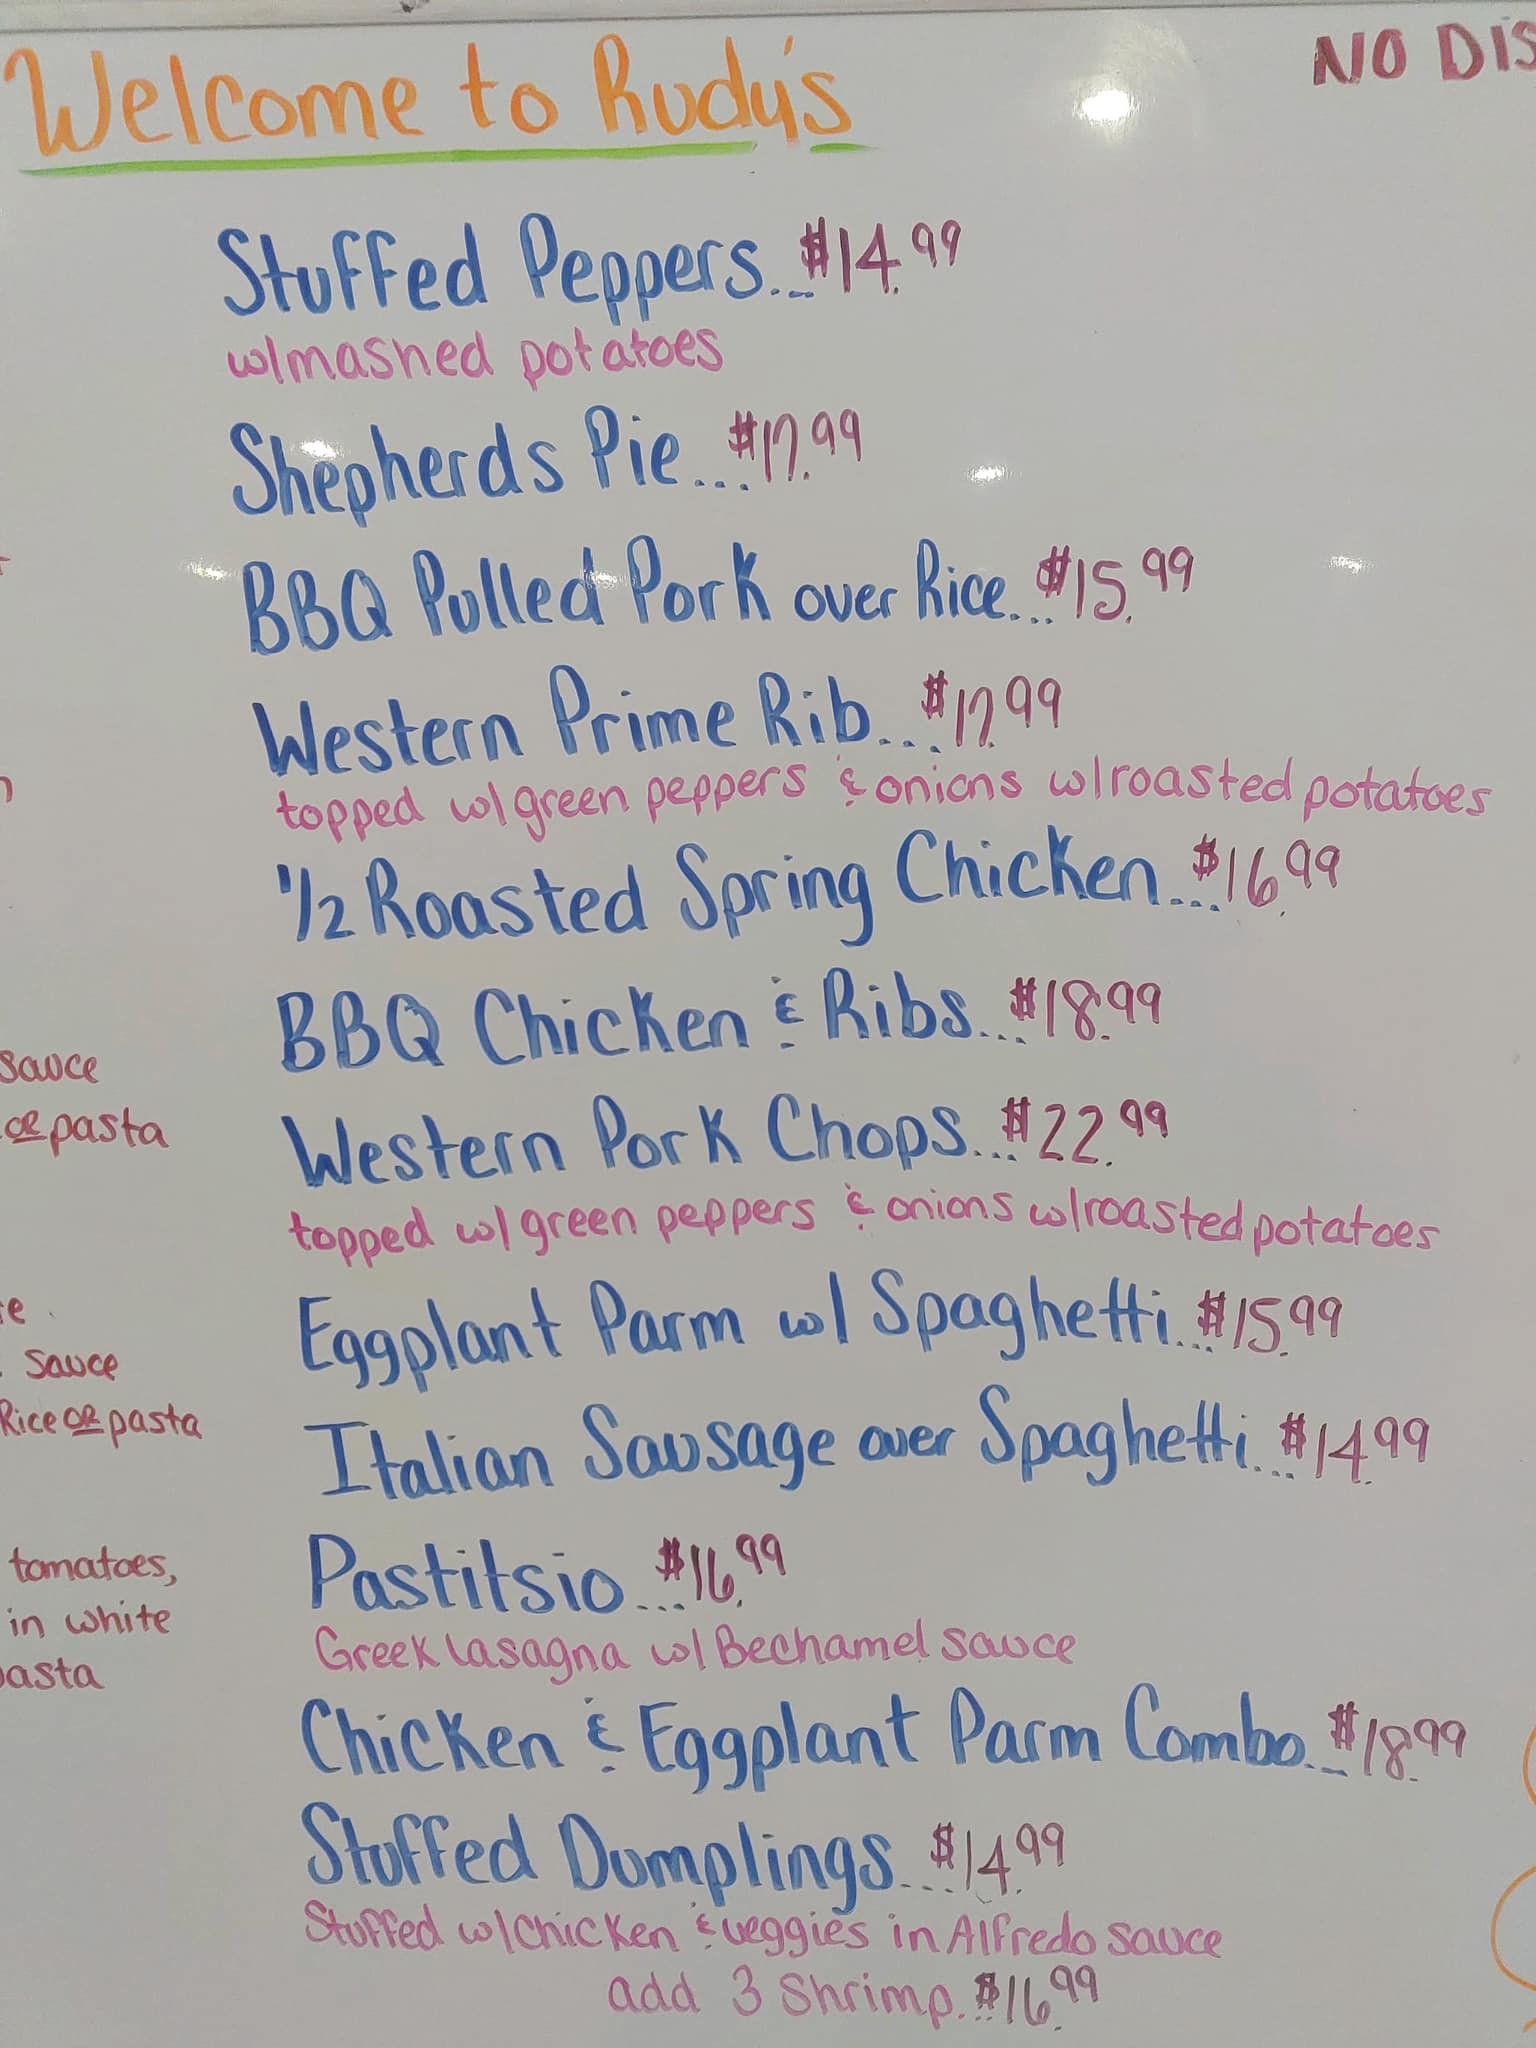 Welcome to Rudy's
NO DIS
Stuffed Peppers... $14.99
w/mashed potatoes
Shepherds Pie... $17.99
BBQ Pulled Pork over Rice... $15.99
Western Prime Rib... $17.99
topped w/green peppers & onions w/roasted potatoes
1/2 Roasted Spring Chicken... $16.99
BBQ Chicken & Ribs... $18.99
Western Pork Chops... $22.99
topped w/green peppers & onions w/roasted potatoes
Eggplant Parm w/ Spaghetti... $15.99
Italian Sausage over Spaghetti... $14.99
Pastitsio... $16.99
Greek Lasagna w/Bechamel sauce
Chicken & Eggplant Parm Combo... $18.99
Stuffed Dumplings... $14.99
Stuffed w/Chicken & veggies in Alfredo sauce
add 3 Shrimp... $16.99
sauce
OR pasta
sauce
Rice OR pasta
tomatoes,
in white
pasta